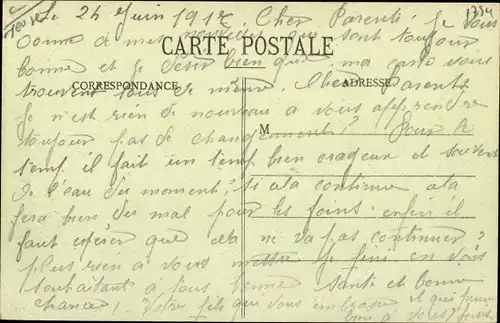 le 24 Juin 1917. Chers Parents. Je vous
donne de mes nouvelles qui sont toujour
CARTE POSTALE
bonne et je désir bien que ma carte vous
CORRESPONDANCE
ADRESSE
trouvent tous de même. Chers Parents
Je n'est rien de nouveau a vous apprendre
toujour pas de changement? Pour le
M
temp il fait un temp bien orageux et souvent
de l'eau du moment? si ala continue ala
fera bien du mal pour les foins. enfin il
faut espérer que cela ne va pas continuer?
plus rien à vous mettre je fini en vous
souhaitant a tous bonne santé et bonne
chance, Votre fils qui vous embrasse et qui pense
bien à vous